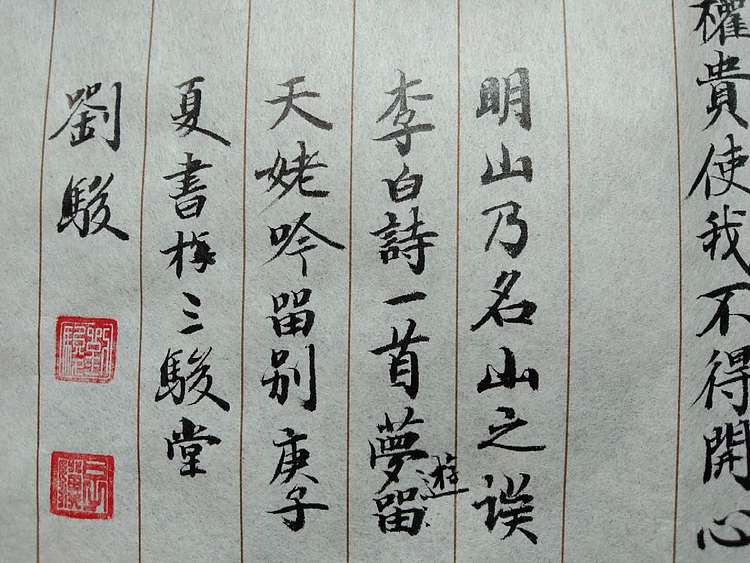 權貴使我不得開心
明山乃名山之误
李白詩一首夢遊留
天姥吟留别庚子
夏書於三駿堂
劉駿